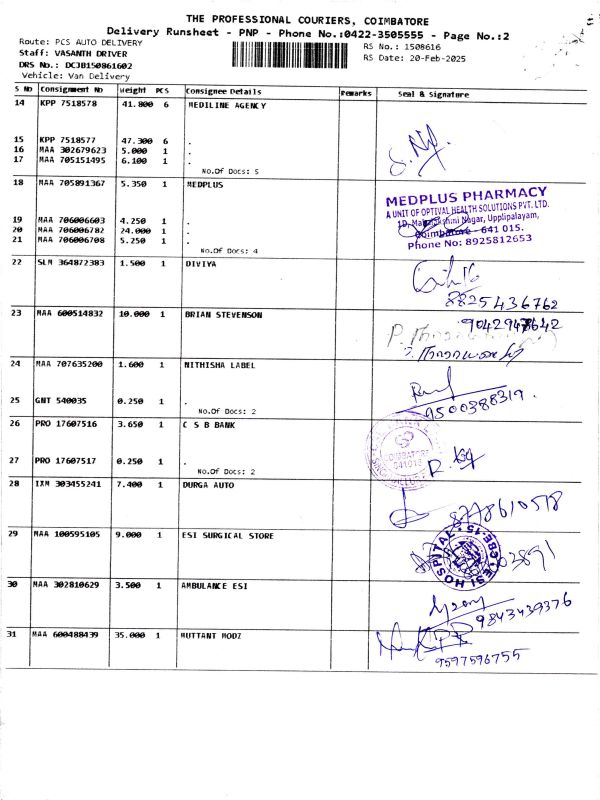 THE PROFESSIONAL COURIERS, COIMBATORE
Delivery Runsheet - PNP - Phone No.:0422-3505555 - Page No.:2
Route: PCS AUTO DELIVERY
RS No.: 1508616
Staff: VASANTH DRIVER
RS Date: 20-Feb-2025
DRS No.: DCJB150861602
Vehicle: Van Delivery
S No Consignment No Weight PCS Consignee Details Remarks Seal & Signature
14 KPP 7518578 41.800 6 MEDILINE AGENCY
15 KPP 7518577 47.300 6 .
16 MAA 302679623 5.000 1 .
17 MAA 705151495 6.100 1 .
No.Of Docs: 5
18 MAA 705891367 5.350 1 MEDPLUS
MEDPLUS PHARMACY
A UNIT OF OPTIVAL HEALTH SOLUTIONS PVT. LTD.
Nagar, Upplipalayam,
19 MAA 706006603 4.250 1 .
20 MAA 706006782 24.000 1 .
Coimbatore - 641 015.
21 MAA 706006708 5.250 1 .
Phone No: 8925812653
No.Of Docs: 4
22 SLM 364872383 1.500 1 DIVIYA
8825436762
23 MAA 600514832 10.000 1 BRIAN STEVENSON
24 MAA 707635200 1.600 1 NITHISHA LABEL
25 GNT 540035 0.250 1 .
9500388319.
No.Of Docs: 2
26 PRO 17607516 3.650 1 C S B BANK
COIMBATORE
27 PRO 17607517 0.250 1 .
No.Of Docs: 2
28 IXM 303455241 7.400 1 DURGA AUTO
8778610518
29 MAA 100595105 9.000 1 ESI SURGICAL STORE
ESI HOSPITAL
CBE-15
30 MAA 302810629 3.500 1 AMBULANCE ESI
9843439376
31 MAA 600488439 35.000 1 MUTTANT MODZ
9597596755